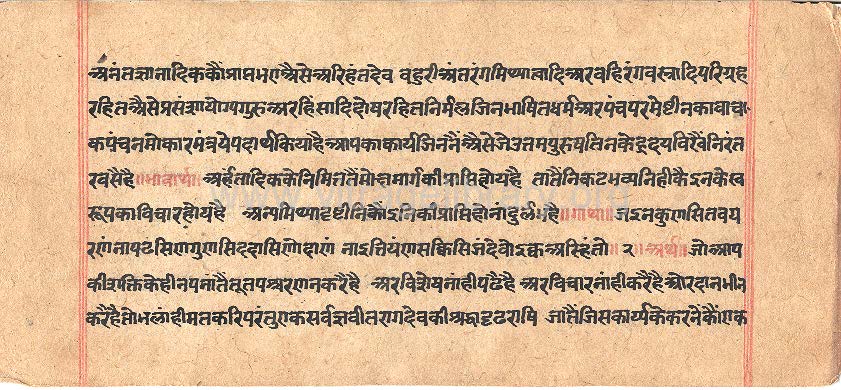 अनंतज्ञानादिककौं प्राप्त भए अैसे अरिहंतदेव बहुरी अंतरंग मिथ्यात्वादि अर बहिरंग वस्त्रादि परिग्रह
रहित अैसे प्रसंशायोग्य गुरु अर हिंसादि दोष रहित निर्मल जिनभाषित धर्म अर पंचपरमेष्टीनका वाचा
क पंचनमोकार मंत्र ये पदार्थ किया है आपका कार्य जिननैं अैसे जे उतम पुरुष तिनके हृदय विषैं निरंत
र वसै है ॥भावार्थ॥ अर्हतादिकके निमित्ततैं मोक्षमार्गकी प्राप्ति होय है तातै निकट भव्यनिहीकै इनके स्व
रूपका विचार होय है अन्य मिथ्यादृष्टीनिकै इनकी प्राप्ति होनां दुर्लभ है ॥गाथा॥ जइ न कुणसि तव यर
णं न पढसि ण गुणसि ददासि णो दाणं ना इत्तियं ण सक्किसि जं देवो इक्क अरिहंतो २ ॥अर्थ॥ जो आप
की शक्तिके हीनपनातै तू तपश्चरण न करै है अर विशेष नांही पढै है अर विचार नांही करै है और दान भी न
करै है तो भलांही मत करि परंतु एक सर्वज्ञ वीतराग देवकी श्रद्धा दृढ राषि जातैं जिस कार्यके करनेकौं एक